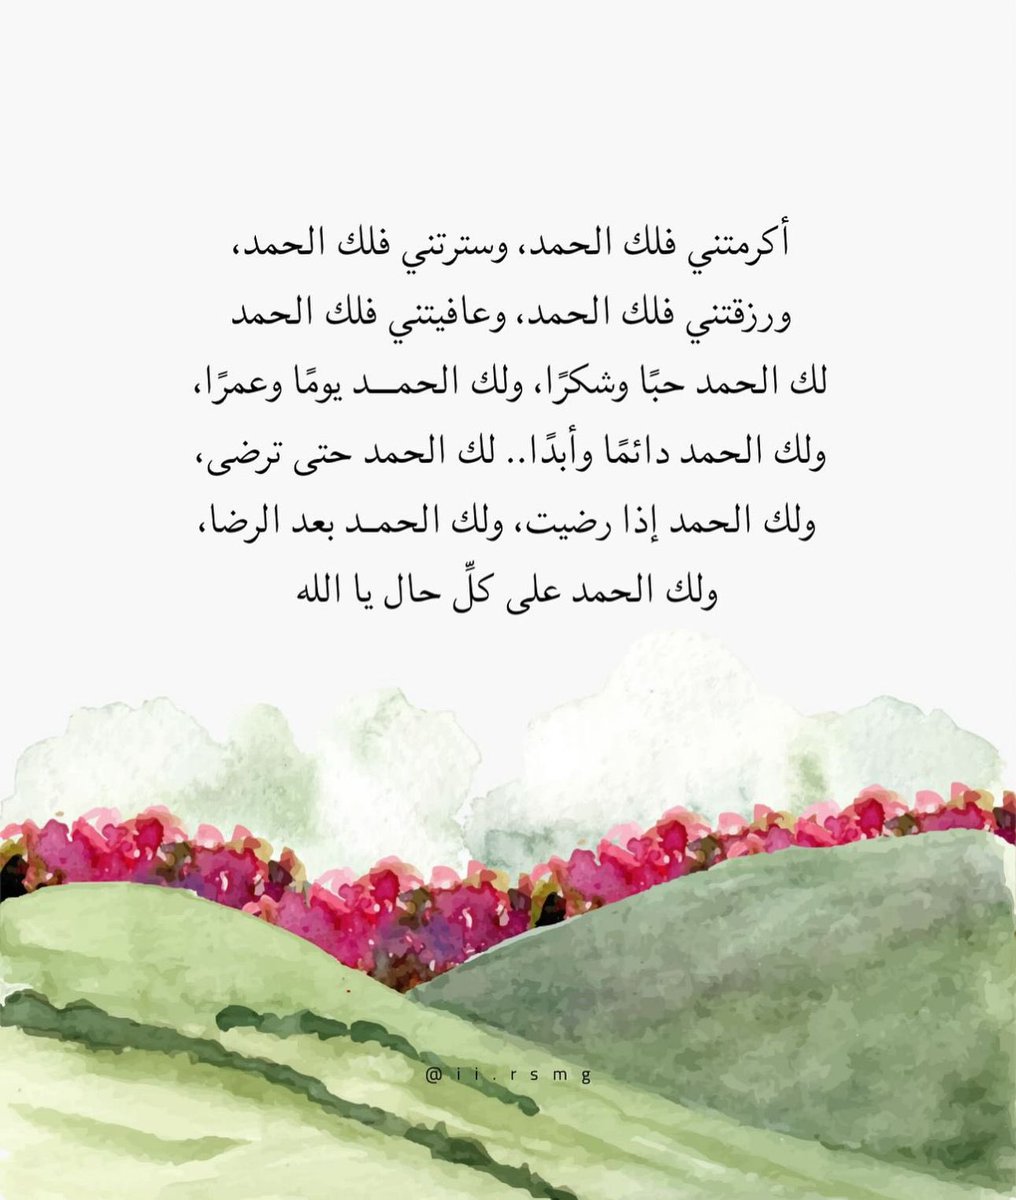 أكرمتني فلك الحمد، وسترتني فلك الحمد،
ورزقتني فلك الحمد، وعافيتني فلك الحمد
لك الحمد حبًا وشكرًا، ولك الحمـــد يومًا وعمرًا،
ولك الحمد دائمًا وأبدًا.. لك الحمد حتى ترضى،
ولك الحمد إذا رضيت، ولك الحمـد بعد الرضا،
ولك الحمد على كلِّ حال يا الله
@ii.rsmg